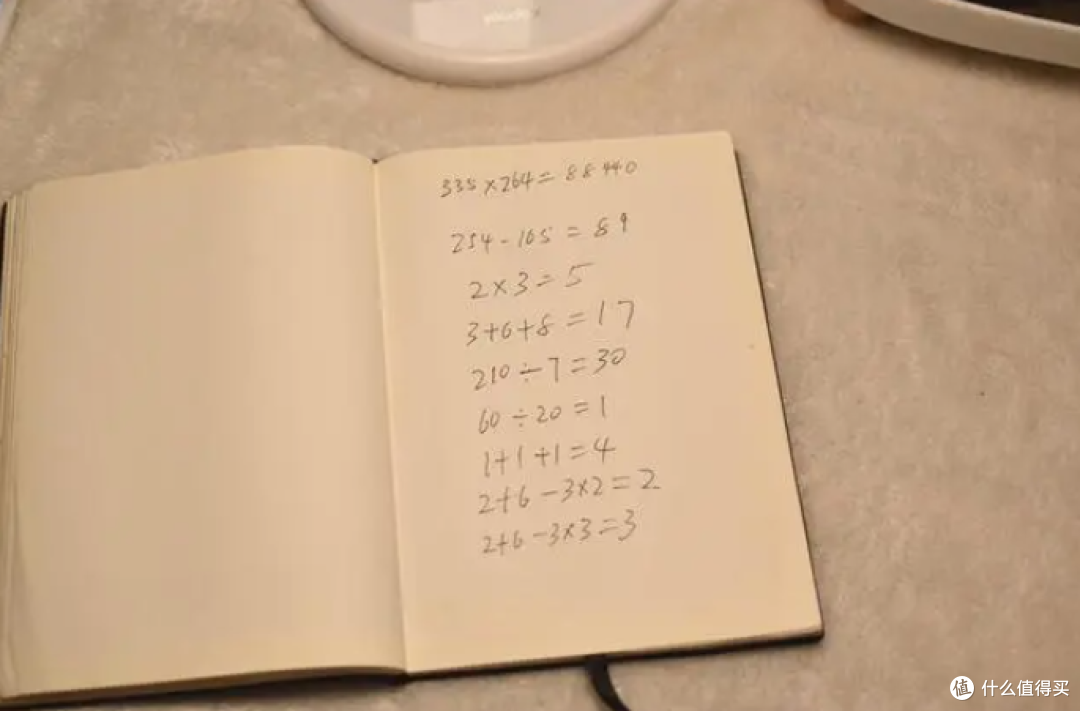 335×264=88440
254-165=89
2×3=5
3+6+8=17
210÷7=30
60÷20=1
1+1+1=4
2+6-3×2=2
2+6-3×3=3
值 什么值得买